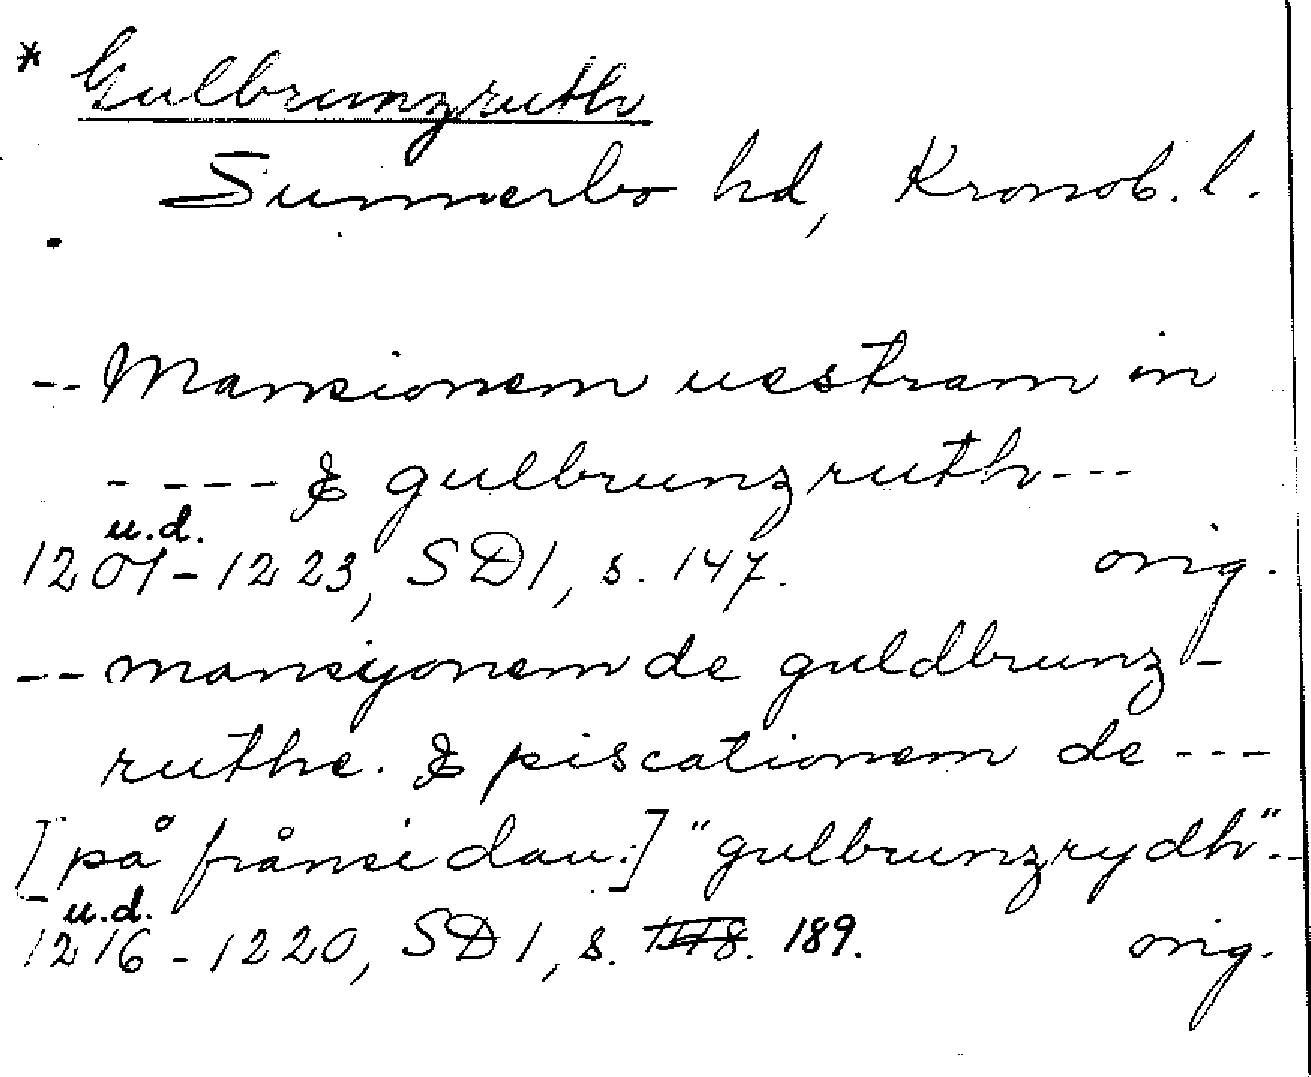 * Gulbrunzruth
Sunnerbo hd, Kronob. l.
-- Mansionem uestram in
---- & gulbrunzruth ---
u.d.
1201-1223, SD1, s. 147. orig.
-- mansyonem de guldbrunz-
ruthe. & piscationem de ---
[på frånsidan:] "gulbrunzrydh".-
u.d.
1216-1220, SD1, s. 189. orig.